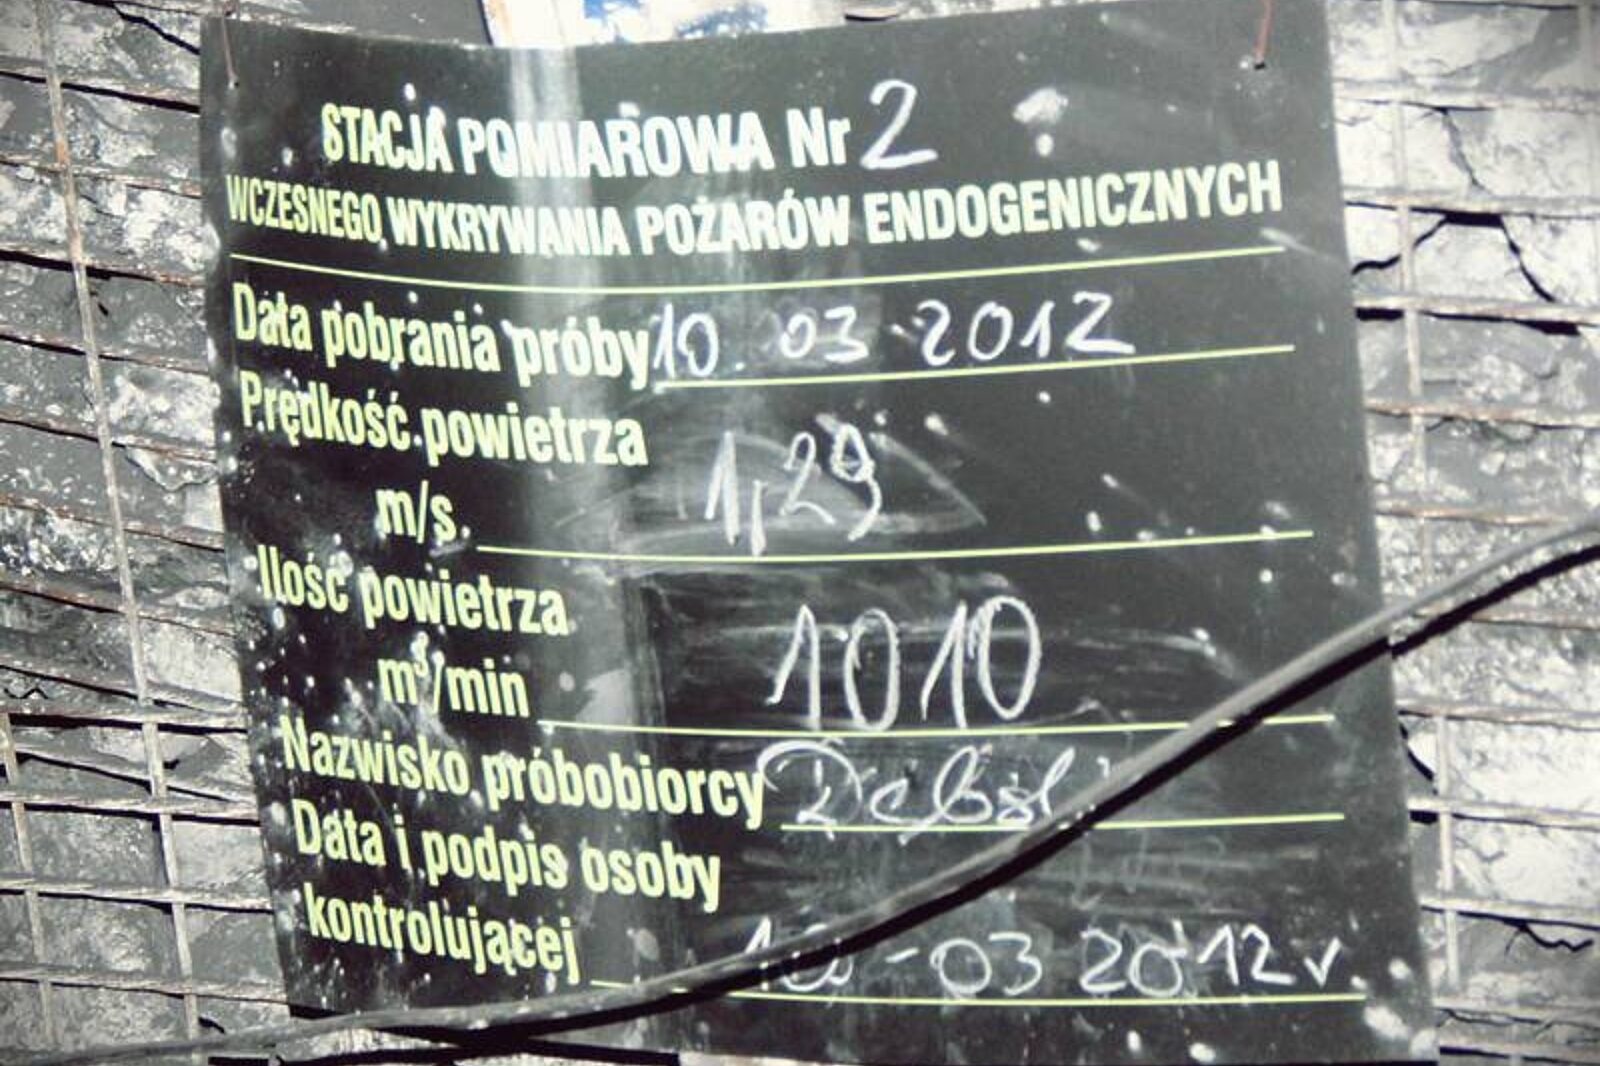 STACJA POMIAROWA Nr 2
WCZESNEGO WYKRYWANIA POŻARÓW ENDOGENICZNYCH
Data pobrania próby 10.03.2012
Prędkość powietrza
m/s. 1,29
Ilość powietrza
m³/min 1010
Nazwisko próbobiorcy
Data i podpis osoby
kontrolującej 10-03 2012r